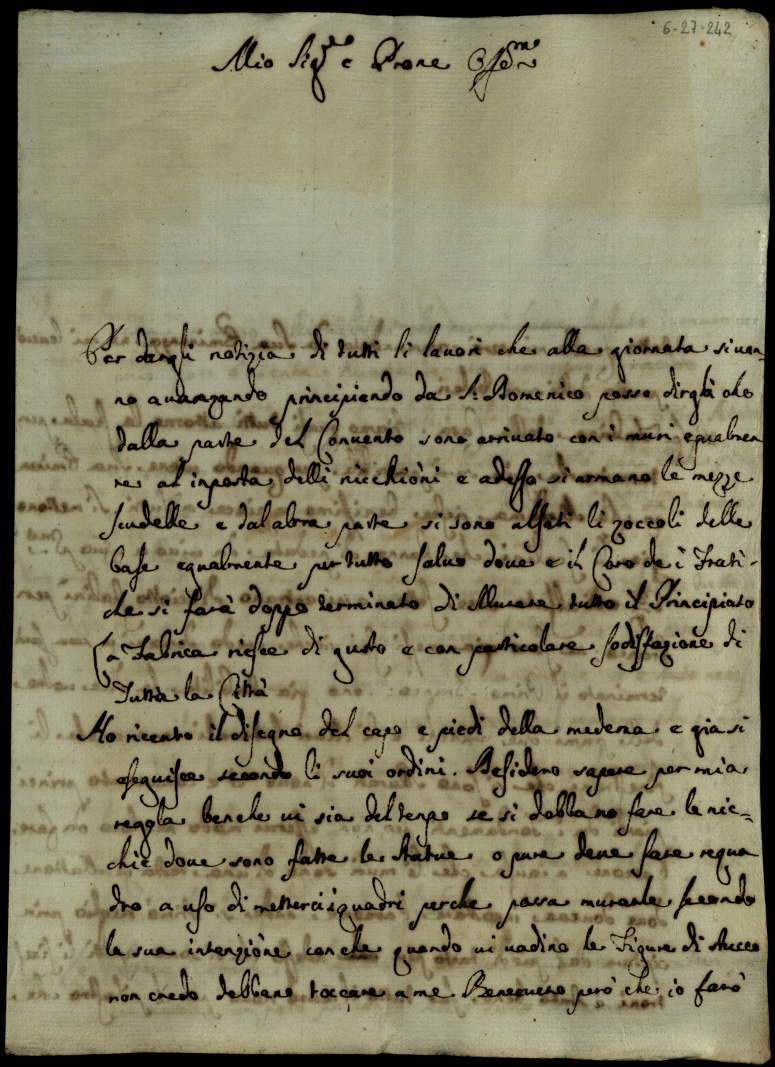 6-27-242
Mio Sig.re e Prone Oss.mo
Per dargli notizia di tutti li lauori che alla giornata si uan-
no auanzando principiando da S: Domenico posso dirgli che
dalla parte del Conuento sono arriuato con i muri egualmen
te al inposta delli nicchioni e adesso si armano le mezze
scudelle e dal altra parte si sono alsati li zoccoli delle
base egualmente per tutto saluo doue e il Coro de i Frati-
che si farà doppo terminato di Murare tutto il Principiato
La Fabrica riesce di gusto e con particolare sodisfazione di
Tutta la Città
Ho riceuto il disegno del capo e piedi della medema e gia si
eseguisce secondo li suoi ordini. Desidero sapere per mia
regola benche ui sia del tenpo se si debbano fare le nic=
chie doue sono fatte le statue o pure deue fare requa
dro a uso di metterci i quadri perche possa murarle secondo
la sua intenzione con che quando ui uadino le Figure di stucco
non credo debbano toccare a me Beneuento però che io farò